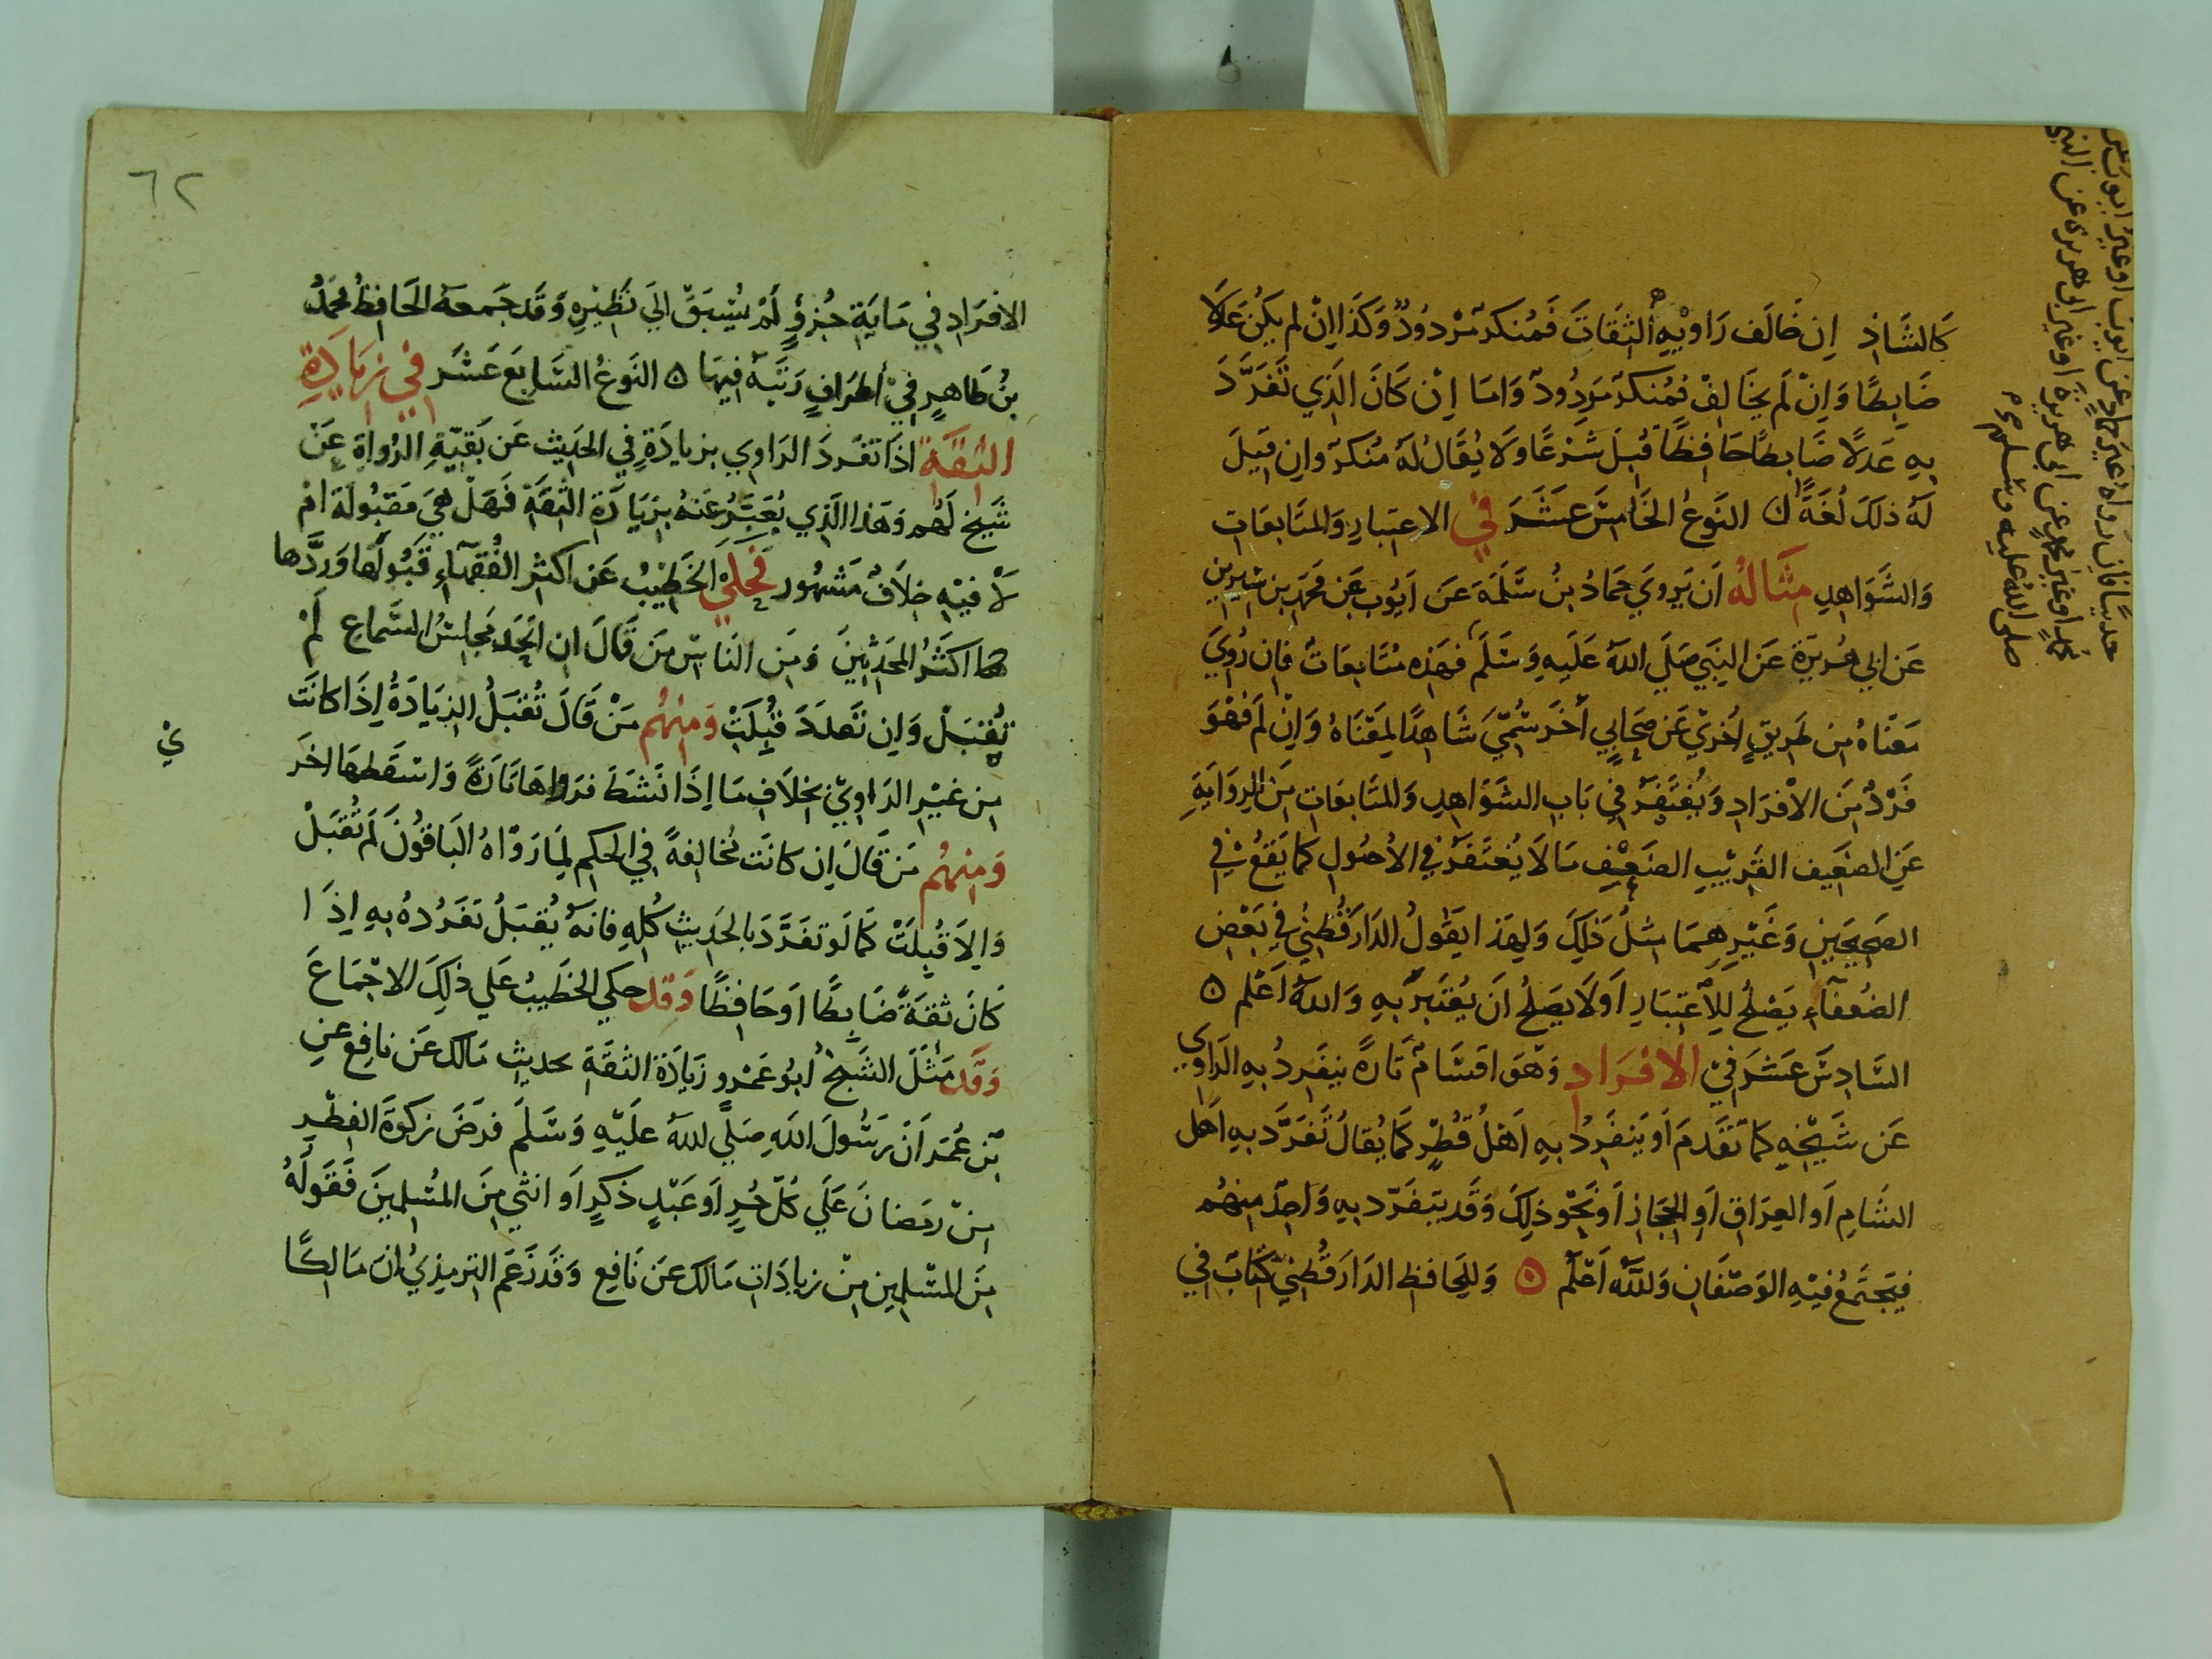 كالشاذ إن خَالَف رَاويْهِ الثقَاتَ فَمُنكر مَردودٌ وَكَذا إن لم يَكُن عَدلا
ضَابِطًا وَاِنْ لَم يخَالِفْ فَمُنكر مَردُودٌ وَامَا اِنْ كَانَ الَذي تَفَرَّدَ
بِهِ عَدلًا ضَابطًا حَافِظًا قُبلَ شَرْعًا وَلَا يُقَالُ لَهُ مُنكرٌ وان قيلَ
لَهُ ذلكَ لُغَةً ۞ النَوعُ الخَامسَ عشَرَ في الاعتبارِ وَالمتَابعَاتِ
وَالشَوَاهِدِ مثَاله أن يَروي حَمادُ بنُ سَلَمَةَ عَن أيُوب عَن مُحَمد بن سيرين
عَن ابي هُريرَةَ عَن النَبي صَلي اللهُ عَلَيهِ وَسَلَم فهَذه مُتَابعَاتٌ فان رُويَ
مَعْنَاهُ مِن طَريقٍ أخرَي عَن صحَابي أخَر سُمّيَ شَاهِدًا لِمعْنَاهُ وَإنْ لَم فهْوَ
فَرْدٌ مِنَ الأفرَادِ وَيُغتَفرُ في بَابِ الشَوَاهِدِ وَالمتَابعَاتِ مِنَ الروَايَةِ
عَنِ الضعَيف القَريْبِ الضعيْفِ مَا لَا يُغتَفَرُ في الأصُولِ كما يَقعُ في
الصَحيحَينِ وَغَيْرِهِمَا مثلُ ذَلِكَ وَلِهَذا يَقُولُ الدَارَقُطنيُ في بَعْضِ
الضُعفَآءِ يَصْلُحُ للِاعتبَارِ اَو لَا يصَلُحُ اَن يُعْتَبرَ بهِ وَاللهُ اَعْلم ۞
السَادِسَ عَشَرَ في الافرَادِ وَهْوَ اقسَامٌ تَارةً يَنفَرِدُ بهِ الرَاوي
عَن شَيْخِهِ كما تَقَدمَ اَو يَنفَرِدُ بهِ اَهْلُ قُطْرٍ كَما يُقالُ تَفَرَّد بهِ اَهل
الشَامِ اَو العِرَاق اَو الحِجَازِ اَو نَحْو ذَلِكَ وَقَد يتَفَرّد بهِ وَاحِدٌ منهُم
فيَجتَمعُ فيْهِ الوَصْفَانِ وَاللهُ اَعْلَم ۞ وَلِلحَافِظِ الدَارَقُطنيِ كتَابٌ في
حديثا فان رواه غير حماد عن ايوب او غير ايوب عن
محمد او غير محمد عن ابي هريرة او غير ابي هريرة عن النبي
صلى الله عليه وسلم
٦٢
الافرَادِ في مَايَةِ جُزؤٍ لَمْ يُسْبَقْ إلَي نَظيرِهِ وَقَد جَمعهُ الحَافِظُ مُحَمَّدُ
بنُ طَاهِرٍ في أطرَافٍ رَتَبَهُ فيهَا ۞ النَوعُ السَابعَ عَشَر في زيَادَةِ
الثقَةِ اذَا تفَردَ الرَاوي بزيادَةٍ في الحديث عَن بَقيّةِ الرُواةِ عَنْ
شَيخٍ لَهُم وَهَذا الَذي يُعَبَّرُ عَنهُ بزيَادَةِ الثِقَةِ فَهَلْ هيَ مَقبُولَة امْ
لَا فيْهِ خِلَافٌ مَشهُور فحكي الخَطيْبُ عَن اكثرِ الفُقهَآءِ قَبُولهَا وَردَّها
اكثَرُ المُحَدثِينَ وَمِن النَاسِ مَن قَالَ ان اتَحَد مَجلسُ السَّماعِ لَمْ
تُقبَلْ وَاِن تَعدَدَ قُبلَتْ وَمنهُم مَنْ قَالَ تُقبَلُ الزيَادَةُ اِذَا كانَت
مِن غيْرِ الرَاويْ بخلَافِ مَا اِذَا نَشطَ فرَواهَا تَارَةً وَاسقَطهَا اخرَ
ي
وَمنهُم مَن قَالَ اِن كانَت مُخَالِفةً في الحكم لِما رَوَاهُ البَاقُونَ لَم تُقبَلْ
وَاِلَا قُبِلَتْ كَما لَو تفَرَّدَ بالحَديثِ كُلهِ فانهُ يُقبَلُ تَفَرُدهُ بهِ إذَا
كَانَ ثقَةً ضَابِطًا اَو حَافظًا وَقد حكي الخَطيبُ عَلي ذلكَ الاجْمَاعَ
وَقَد مَثَلَ الشَيخُ أبُو عَمرو زيَادَة الثقَةِ بحديثِ مَالك عَن نافِع عنِ
بن عُمَر اَنَّ رَسُولَ اللهِ صَلَي للهُ علَيْهِ وَسَلَمَ فرَضَ زَكوةَ الفطْرِ
مِنْ رمَضانَ عَلَي كُلّ حُرٍ اَو عَبْدٍ ذَكرٍ اَو انثي مِنَ المُسْلمِينَ فقَوْلُهُ
مِنَ المسْلمِين مِنْ زيادَاتِ مَالك عَن نَافِع وَقَد زَعَم الترمِذيُ أنَ مَالكًا